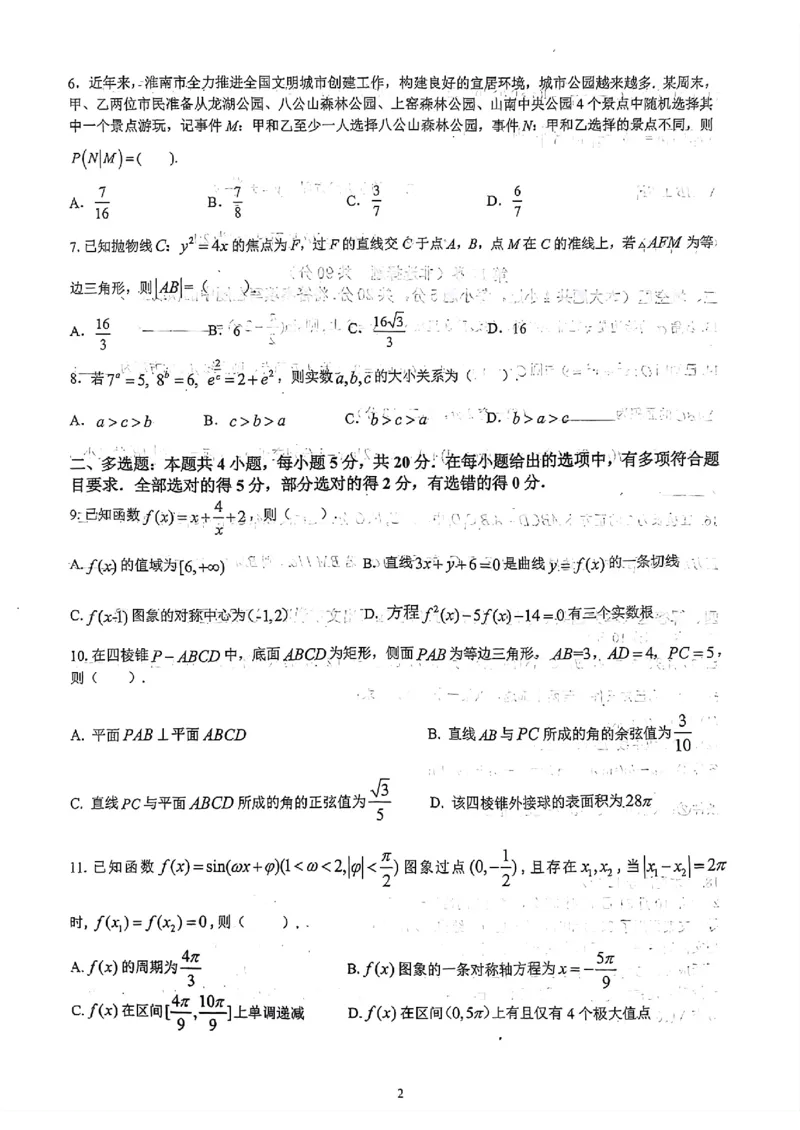 6．近年来，淮南市全力推进全国文明城市创建工作，构建良好的宜居环境，城市公园越来越多．某周末，
甲、乙两位市民准备从龙湖公园、八公山森林公园、上窑森林公园、山南中央公园 4 个景点中随机选择其
中一个景点游玩，记事件 M：甲和乙至少一人选择八公山森林公园，事件 N：甲和乙选择的景点不同，则
P(N|M)=(  ).
A. 7/16  B. 7/8  C. 3/7  D. 6/7
7.已知抛物线C：y²=4x的焦点为F，过F的直线交C于点A，B，点M在C的准线上，若△AFM为等
边三角形，则|AB|=（  ）.
A. 16/3  B. 6  C. 16√3/3  D. 16
8．若7^a=5, 8^b=6, e^(2/c)=2+e²，则实数a,b,c的大小关系为（  ）.
A. a>c>b  B. c>b>a  C. b>c>a  D. b>a>c
二、多选题：本题共 4 小题，每小题 5 分，共 20 分．在每小题给出的选项中，有多项符合题
目要求．全部选对的得 5 分，部分选对的得 2 分，有选错的得 0 分．
9. 已知函数f(x)=x+4/x+2，则（  ）.
A. f(x)的值域为[6,+∞)  B. 直线3x+y+6=0是曲线y=f(x)的一条切线
C. f(x-1)图象的对称中心为(-1,2)  D. 方程f²(x)-5f(x)-14=0有三个实数根
10.在四棱锥P-ABCD中，底面ABCD为矩形，侧面PAB为等边三角形，AB=3，AD=4，PC=5，
则（  ）.
A. 平面PAB⊥平面ABCD  B. 直线AB与PC所成的角的余弦值为3/10
C. 直线PC与平面ABCD所成的角的正弦值为√3/5  D. 该四棱锥外接球的表面积为28π
11. 已知函数f(x)=sin(ωx+φ)(1<ω<2,|φ|<π/2)图象过点(0,-1/2)，且存在x₁,x₂，当|x₁-x₂|=2π
时，f(x₁)=f(x₂)=0,则（  ）.
A. f(x)的周期为4π/3  B. f(x)图象的一条对称轴方程为x=-5π/9
C. f(x)在区间[4π/9,10π/9]上单调递减  D. f(x)在区间(0,5π)上有且仅有 4 个极大值点
2